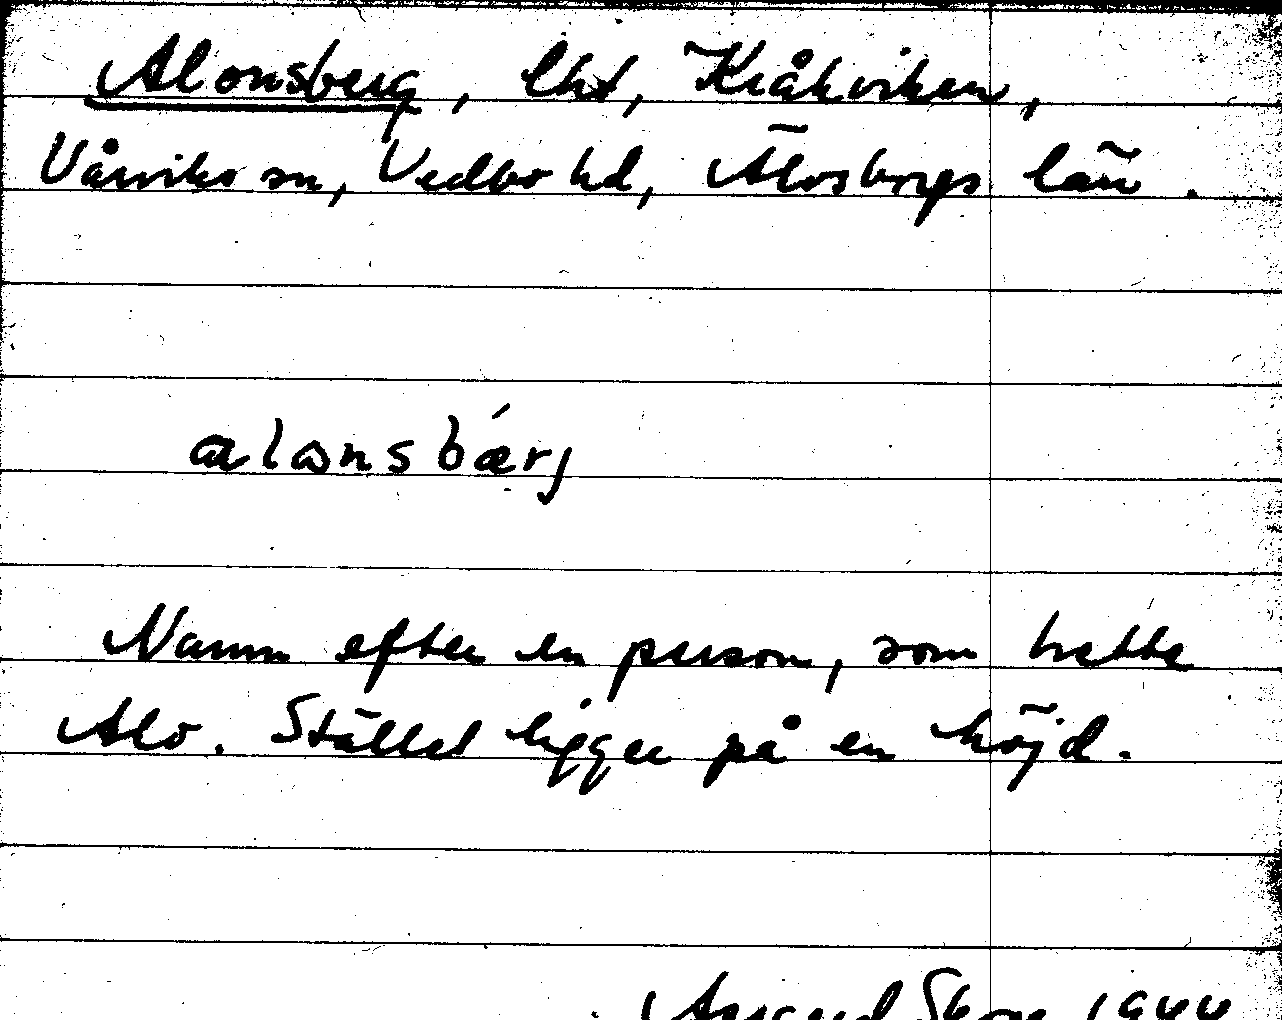 Alonsberg, lht, Kråkviken,
Vårviks sn, Vedbo hd, Älvsborgs län.
alɷnsbǽrj
Namn efter en person, som hette
Alo. Stället ligger på en höjd.
1944